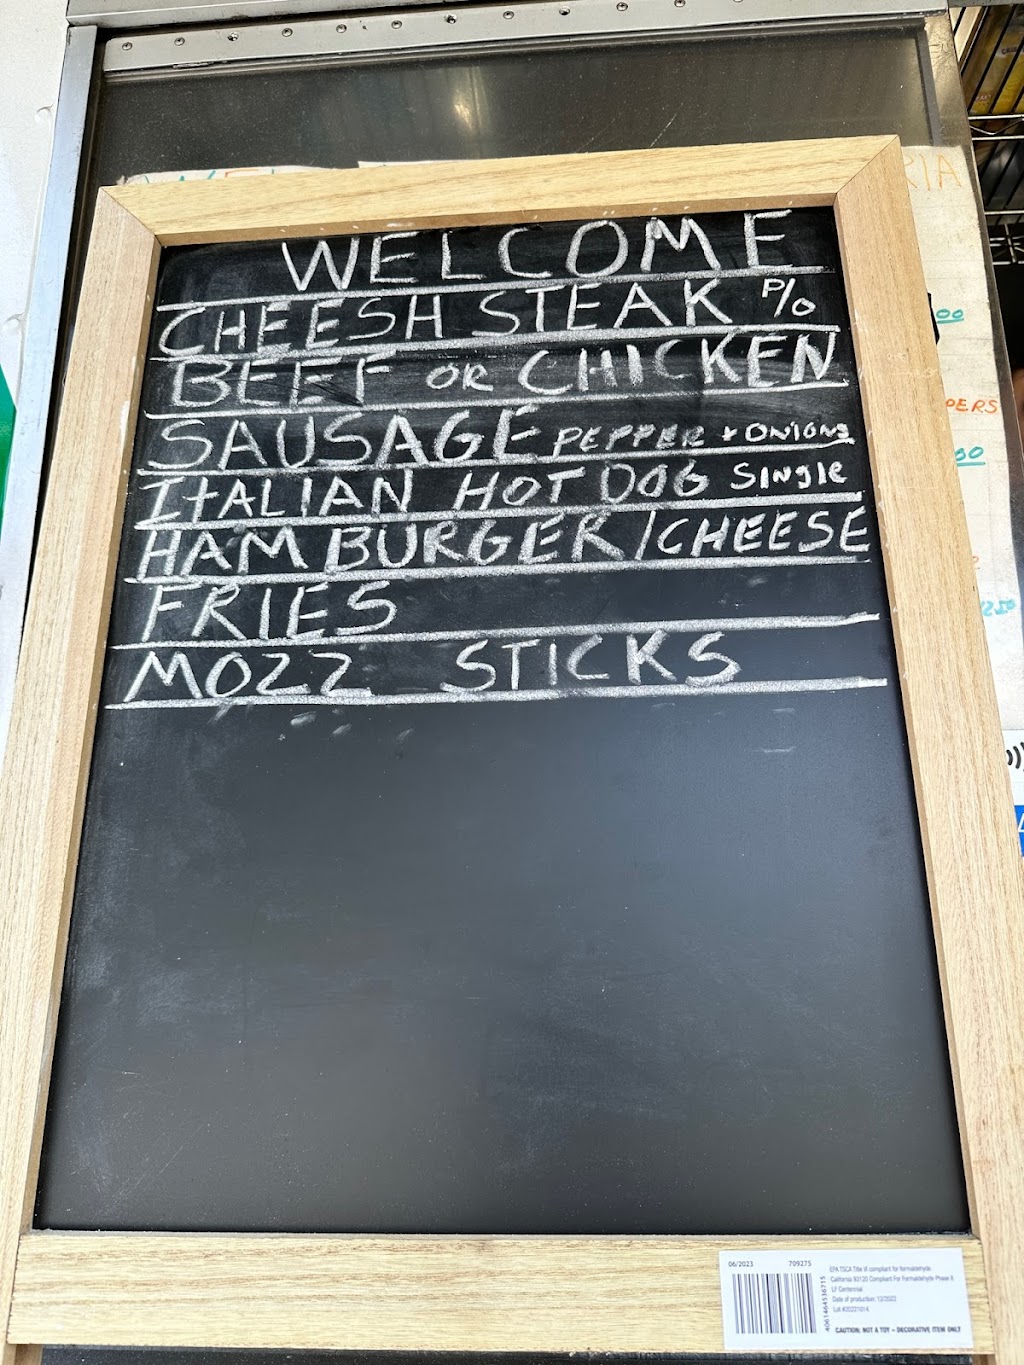 WELCOME
CHEESH STEAK P/O
BEEF OR CHICKEN
SAUSAGE PEPPER + ONIONS
ITALIAN HOT DOG SINGLE
HAMBURGER/CHEESE
FRIES
MOZZ STICKS
RIA
.00
PERS
00
2250
06/2023 709275
EPA TSCA Title VI compliant for formaldehyde.
California 93120 Compliant For Formaldehyde Phase II
LF Centennial
Date of production, 12/2022
Lot #20221014
CAUTION: NOT A TOY - DECORATIVE ITEM ONLY
4061464536715